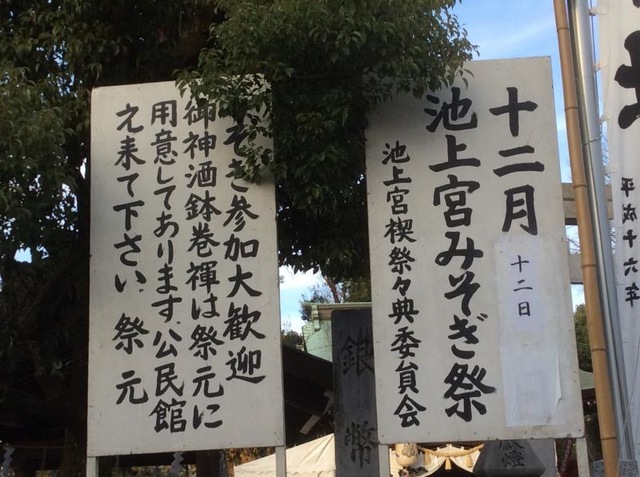 十二月
十二日
池上宮みそぎ祭
池上宮禊祭々典委員会
そぎ参加大歓迎
御神酒鉢巻褌は祭元に
用意してあります、公民館
え来て下さい 祭元
平成十六年
銀幣